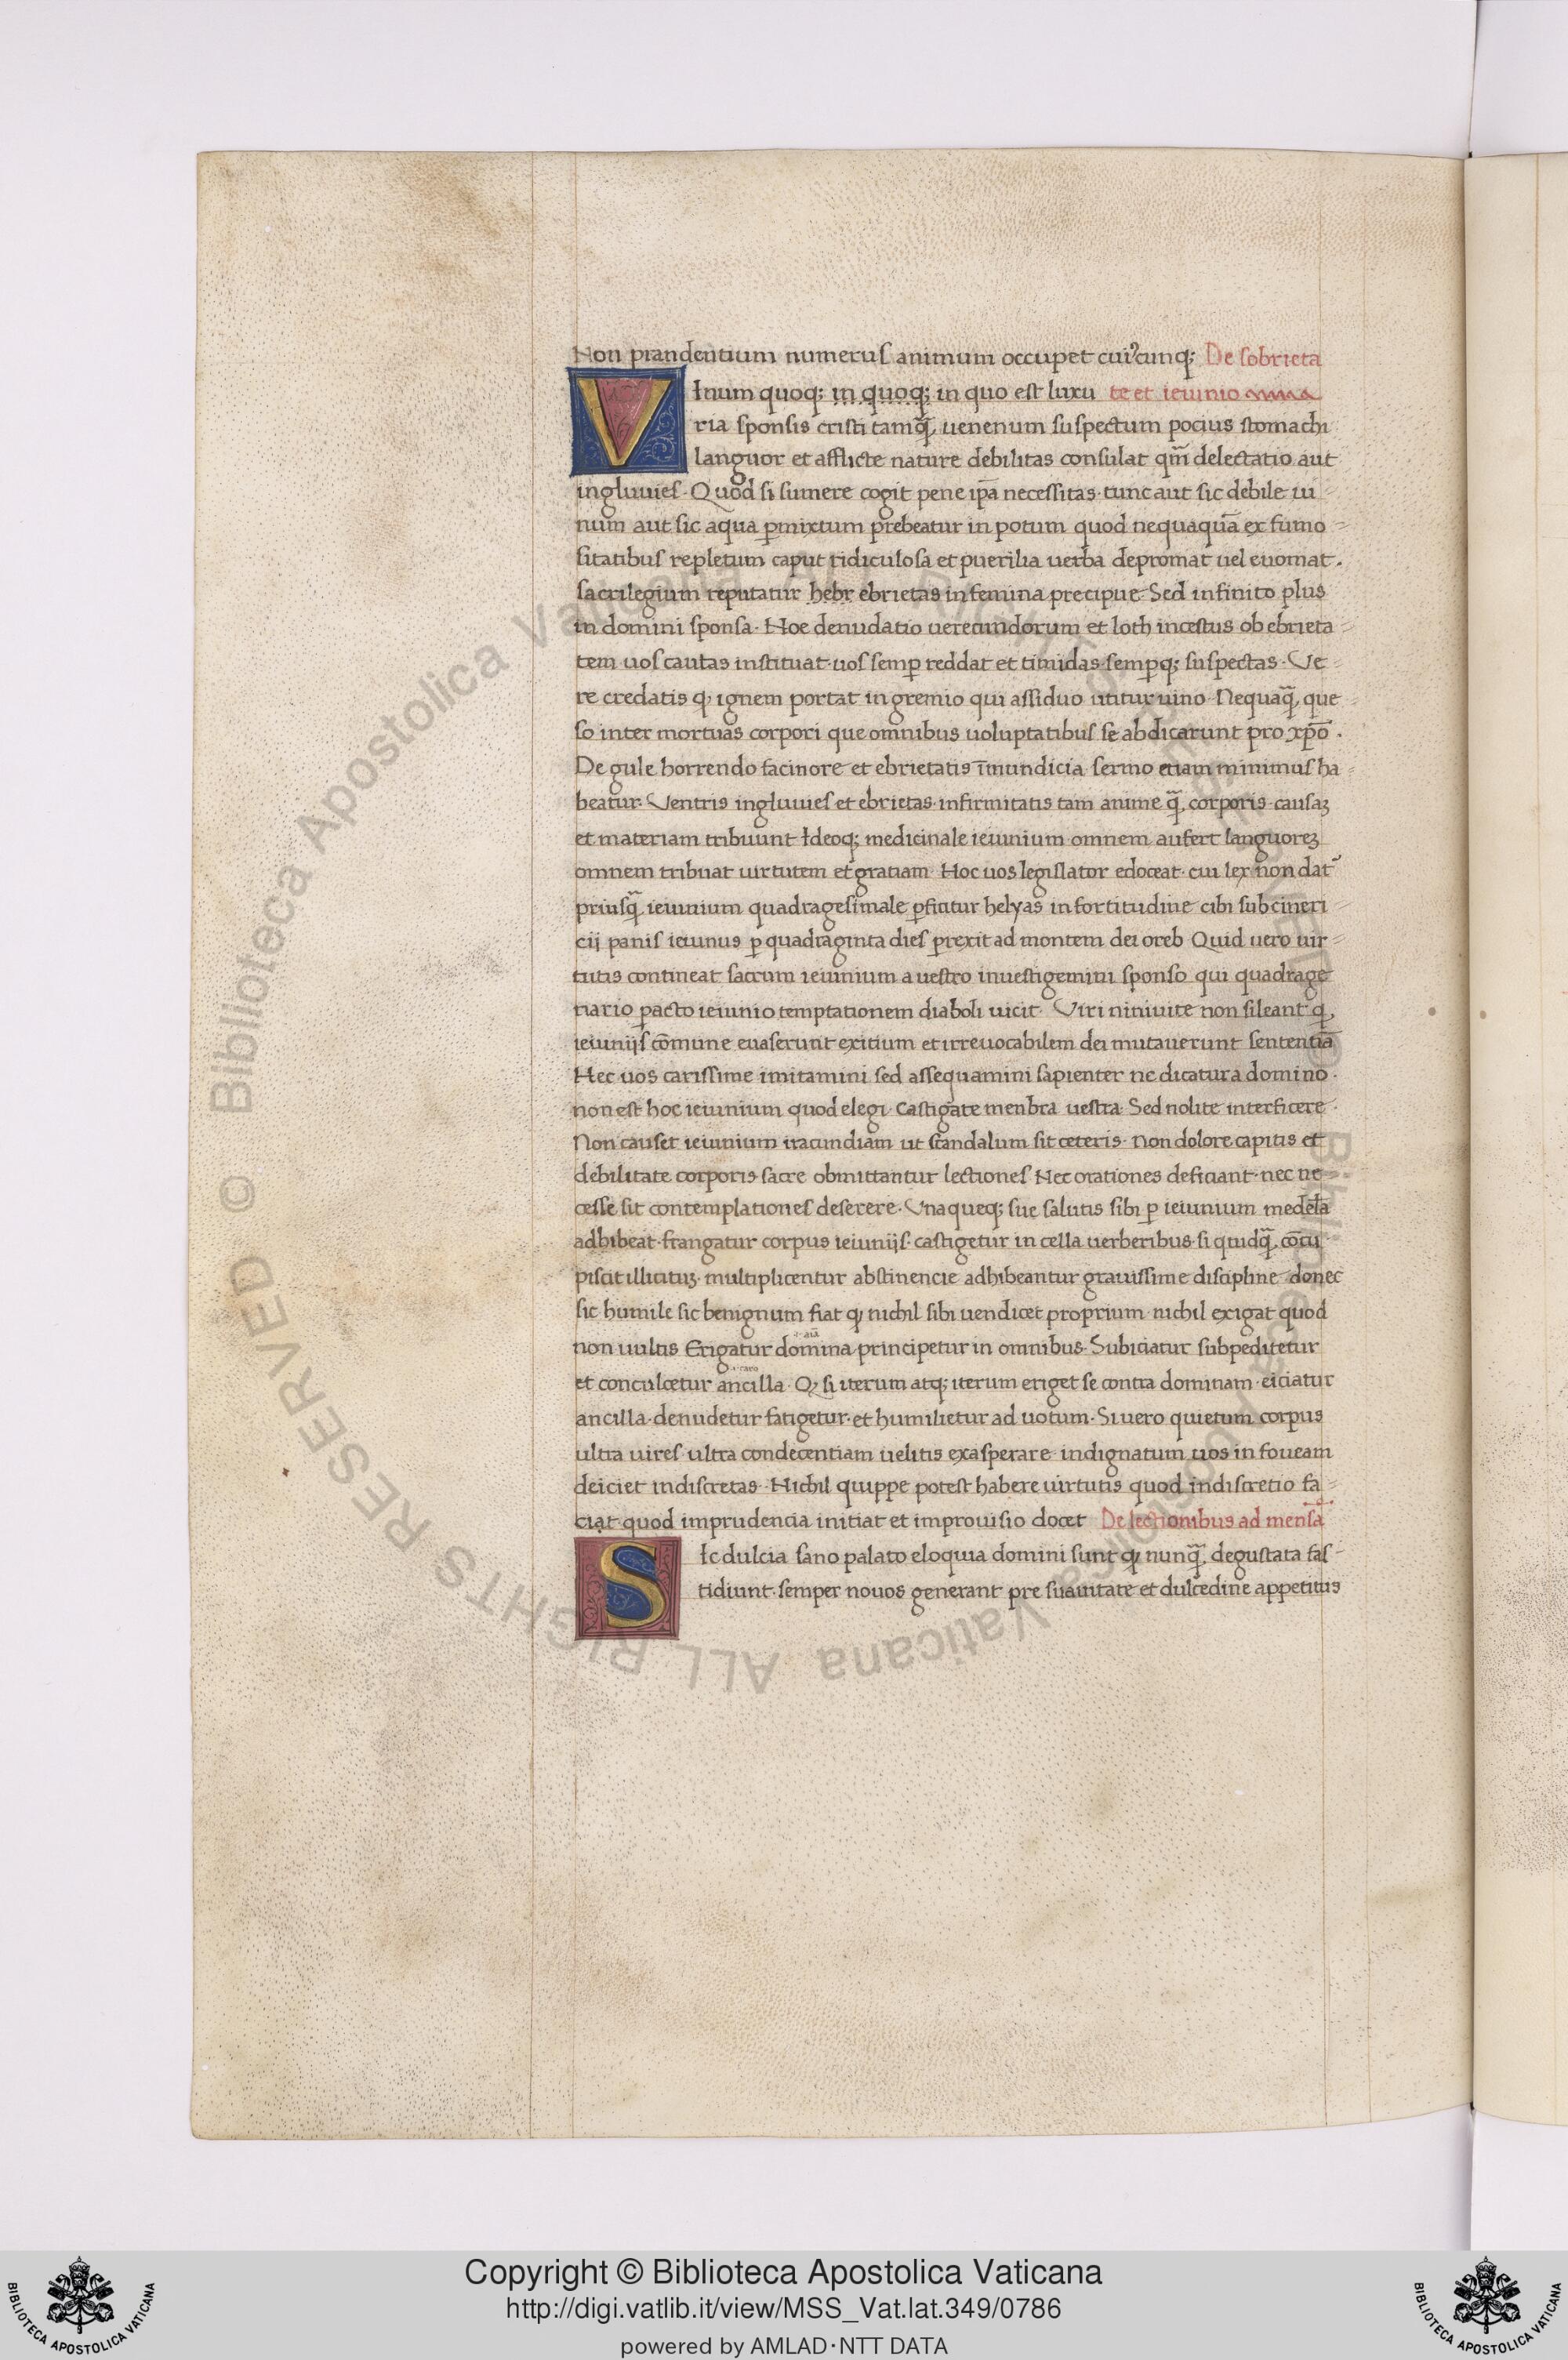 Non prandentium numerus animum occupet cuiꝰcunqꝫ De sobrieta
Vinum quoqꝫ in quoqꝫ in quo est luxu te et ieiunio
ria sponsis cristi tamq̃ uenenum suspectum pocius stomachi
languor et afflicte nature debilitas consulat qm̄ delectatio aut
ingluuies. Quod si sumere cogit pene ip̄a necessitas. tunc aut sic debile ui
num aut sic aqua ꝑmixtum prebeatur in potum quod nequaquā ex fumo
sitatibus repletum caput ridiculosa et puerilia uerba depromat uel euomat.
sacrilegium reputatur hebr ebrietas in femina precipue. Sed infinito plus
in domini sponsa. Noe denudatio uerecundorum et loth incestus ob ebrieta
tem uos cautas instituat. uos semꝑ reddat et timidas. semꝑqꝫ suspectas. Ve
re credatis ꝙ ignem portat in gremio qui assiduo utitur uino. Nequaq̃ que
so inter mortuas corpori que omnibus uoluptatibus se abdicarunt pro xp̄o.
De gule horrendo facinore et ebrietatis īmundicia sermo etiam minimus ha
beatur. Ventris ingluuies et ebrietas. infirmitatis tam anime q̃ corporis. causaꝫ
et materiam tribuunt Ideoqꝫ medicinale ieiunium omnem aufert languoreꝫ
omnem tribuat uirtutem et gratiam Hoc uos legislator edoceat. cui lex non datꝰ
priusq̃ ieiunium quadragesimale ꝑficitur helyas in fortitudine cibi subcineri
cij panis ieiunus ꝑ quadraginta dies ꝑrexit ad montem dei oreb Quid uero uir
tutis contineat sacrum ieiunium a uestro inuestigemini sponso qui quadrage
nario ꝑacto ieiunio temptationem diaboli uicit. Viri niniuite non sileant ꝙ
ieiunijs cōmune euaserunt exitium et irreuocabilem dei mutauerunt sententiā
Hec uos carissime imitamini sed assequamini sapienter ne dicatura domino.
non est hoc ieiunium quod elegi. Castigate menbra uestra. Sed nolite interficere.
Non causet ieiunium iracundiam ut scandalum sit ceteris. Non dolore capitis et
debilitate corporis sacre obmittantur lectiones Nec orationes deficiant. nec ne
cesse sit contemplationes deserere. Vnaqueqꝫ sue salutis sibi ꝑ ieiunium medelā
adhibeat. frangatur corpus ieiunijs. castigetur in cella uerberibus. si quidq̃ cōcu
piscit illicituꝫ. multiplicentur abstinencie adhibeantur grauissime discipline donec
sic humile sic benignum fiat ꝙ nichil sibi uendicet proprium. nichil exigat quod
non uultis Erigatur domina principetur in omnibus. Subiciatur subpeditetur
et conculcetur ancilla. Qꝫ si iterum atqꝫ iterum eriget se contra dominam. eiciatur
ancilla. denudetur fatigetur. et humilietur ad uotum. Si uero quietum corpus
ultra uires. ultra condecentiam uelitis exasperare. indignatum uos in foueam
deiciet indiscretas. Nichil quippe potest habere uirtutis quod indiscretio fa
ciat quod imprudencia initiat et improuisio docet De lectionibus ad mensā
Sic dulcia sano palato eloquia domini sunt ꝙ nunq̃ degustata fas
tidiunt. semper nouos generant pre suauitate et dulcedine appetitus
© Biblioteca Apostolica Vaticana ALL RIGHTS RESERVED
Copyright © Biblioteca Apostolica Vaticana
http://digi.vatlib.it/view/MSS_Vat.lat.349/0786
powered by AMLAD·NTT DATA
BIBLIOTECA APOSTOLICA VATICANA
BIBLIOTECA APOSTOLICA VATICANA